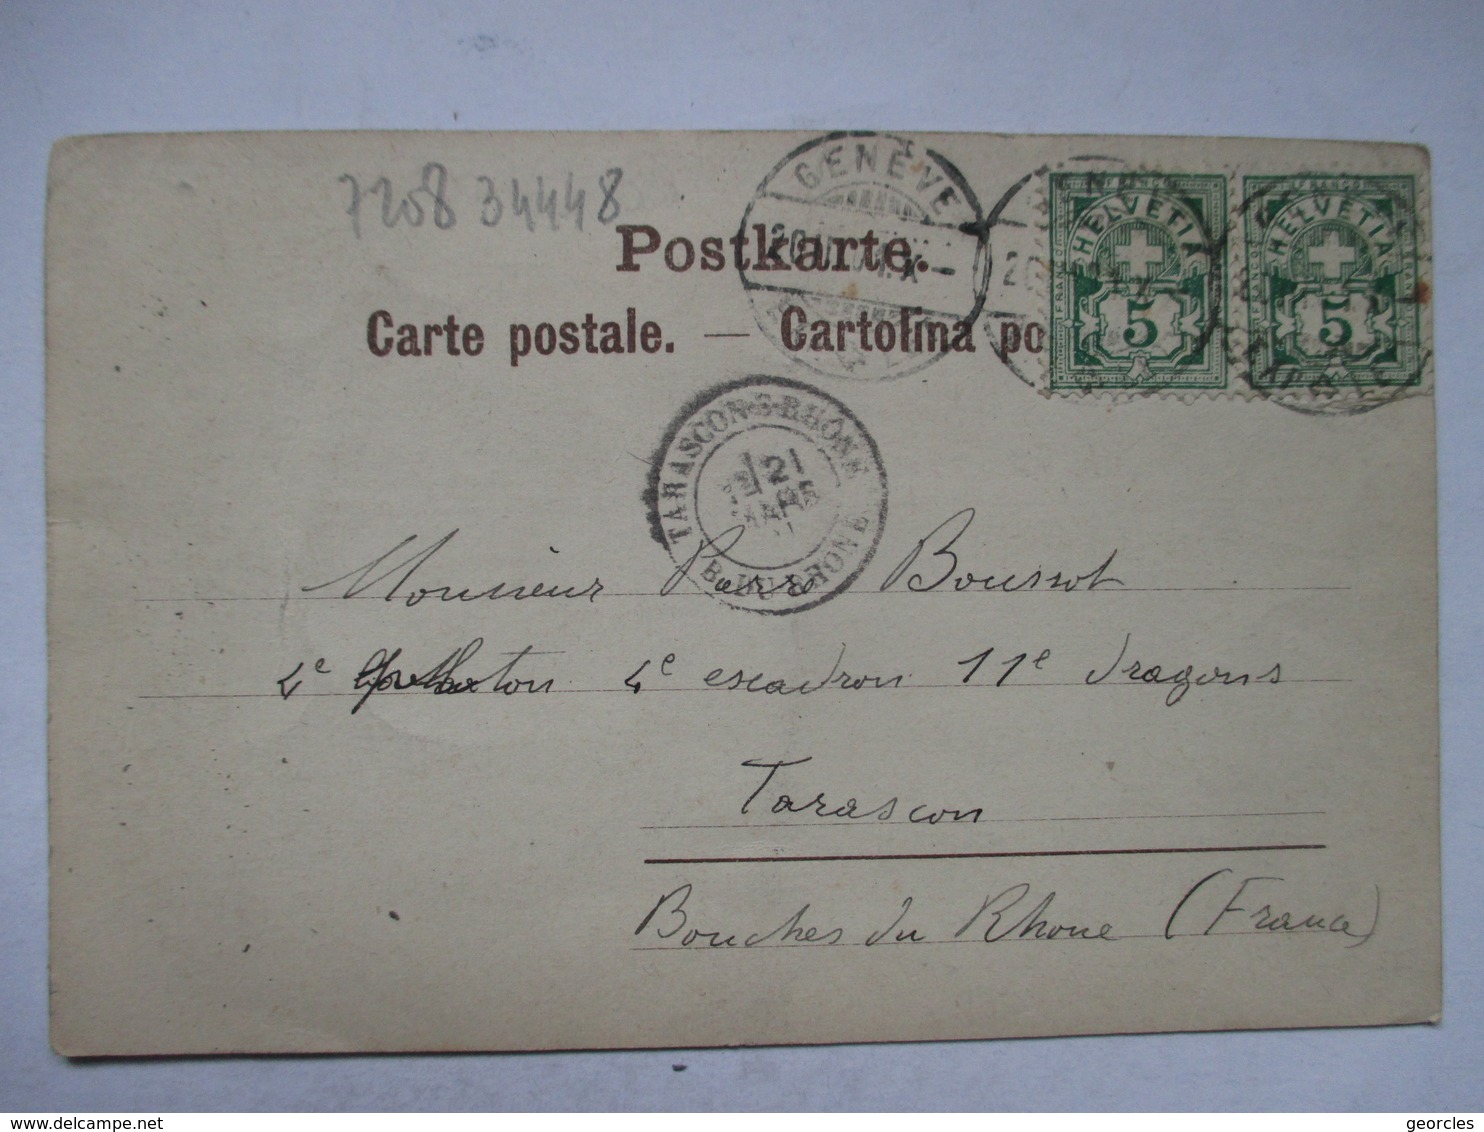 7208 34448
Postkarte.
Carte postale. — Cartolina po
GENÈVE
HELVETIA
5
HELVETIA
5
TARASCON-S-RHÔNE
21
B. DU RHONE
Monsieur Pierre Boussot
4e peloton 4e escadron 11e dragons
Tarascon
Bouches du Rhone (France)
delcampe.net
georcles